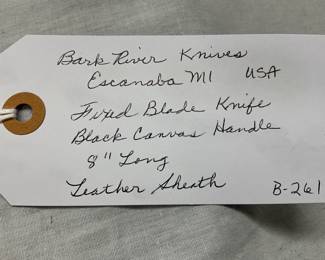 Bark River Knives
Escanaba MI USA
Fixed Blade Knife
Black Canvas Handle
8" Long
Leather Sheath
B-261